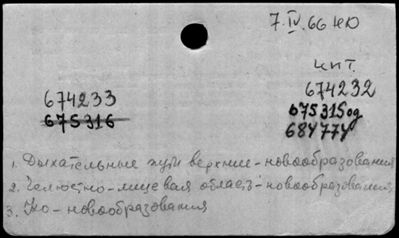 7.IV.66 НЮ
инт.
674233
674232
675316
675315 од
684774
1. Дыхательные пути верхние - новообразования
2. Челюстно-лицевая область - новообразования
3. Ухо - новообразования